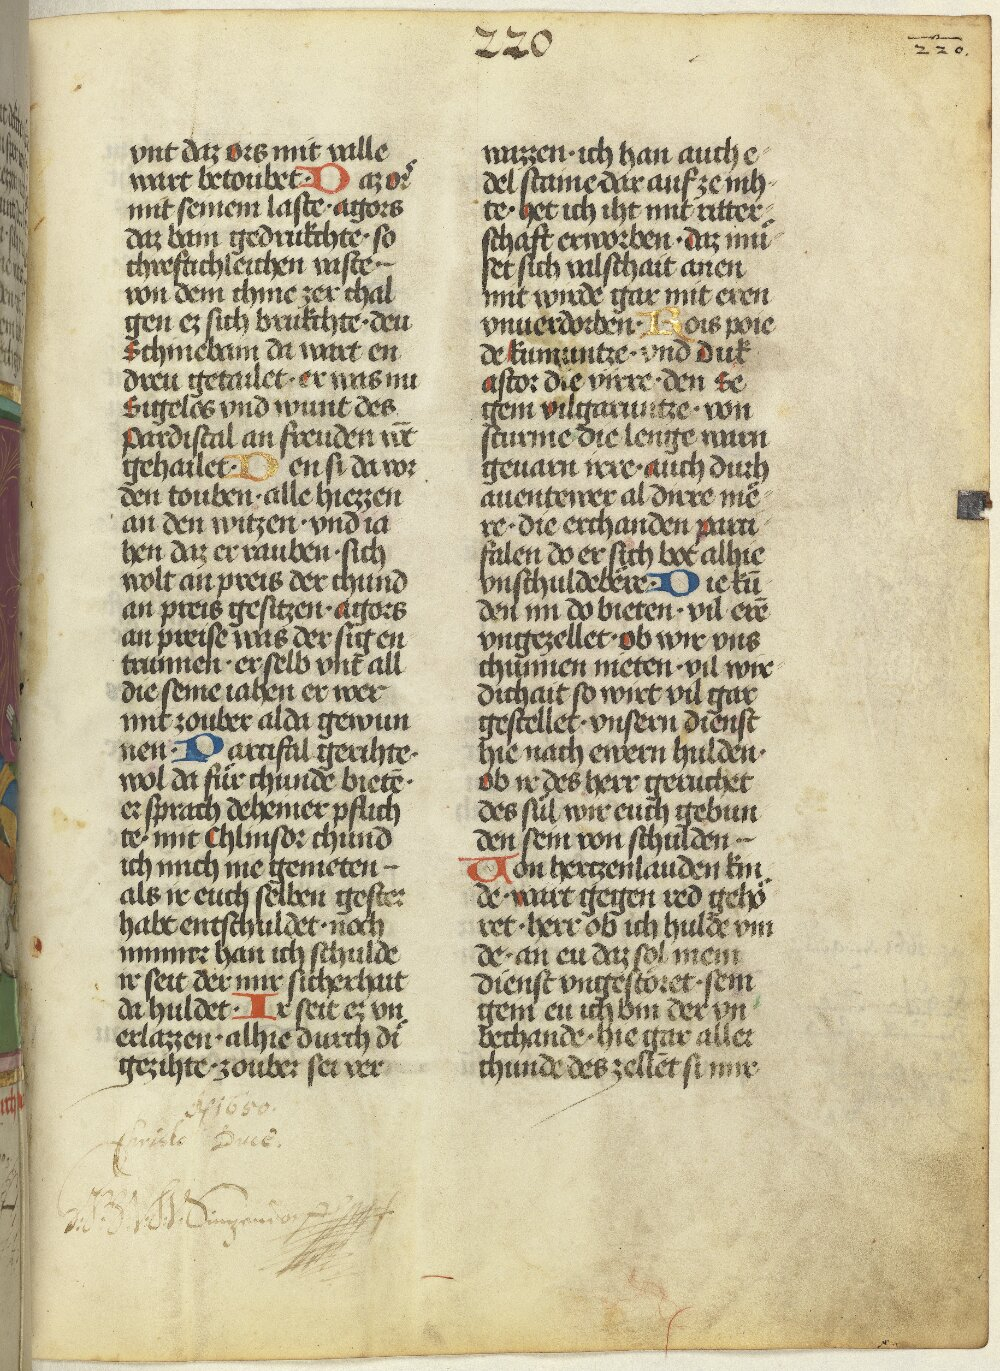 220
220.
vnt daz ors mit valle
wart betoubet · Daz or̄
mit seinem laste · agors
daz bam gedrukchte · so
chreftichleichen vaste ·–
von dem chine zer chal
gen ez sich brukchte · deu
Schinebain da wart en
dreu getailet · er was nu
Sigelos vnd wunt des
pardiscal an freuden wt̄
gehailet · Den si da vor
den touben · alle hiezzen
an den witzen · vnd ia
hen daz er rauben · sich
wolt an preis der chund
an preis gesitzen · agors
an preise was der sig en
trunnen · er selb vnt̄ all
die seine iahen er wer
mit zouber alda gewun
nen · Partisal gerihte ·
wol da für chunde bietē ·
er sprach deheiner pflich
te · mit Chlinsor chund
ich mich nie genieten –
als ir euch selben gester
habt entschuldet · noch
nimmer han ich schulde
ir seit der mir sicherhait
da huldet · Ir seit ez vn
erlazzen · alhie durch di
gezihte · zouber sei ver
wazzen · ich han auch e
del stame dar auf ze inh
te · het ich iht mit ritter
schaft erworben · daz mü
set sich valschait anen
mit wirde gar mit eren
vnuerdorben · Rois poie
de kumuntze · vnd Duk
astor die virre · den Se
gem vilgaruntze · von
sturme die lenge warn
geuarn irre · auch durh
auentewer al dirre me
re · die erchanden parti
falen do er sich bot alhie
vnschuldebere · Die kū
den im do bieten · vil erē
vngezellet · ob wir vns
chunnen nieten · vil wir
dichait so wirt vil gar
gestellet · vnsern dienst
hie nach ewern hulden ·
ob ir des herr geruchet
des sül wir euch gebun
den sein von schulden –
Von hertzenlauden kin
de · wart gegen red gehö
ret · herr ob ich hulde vin
de · an eu daz sol mein
dienst vngestoret · sein
gem eu ich bin der vn
bechande · hie gar aller
chunde des zellet si mir
1650.
Christo Duce.